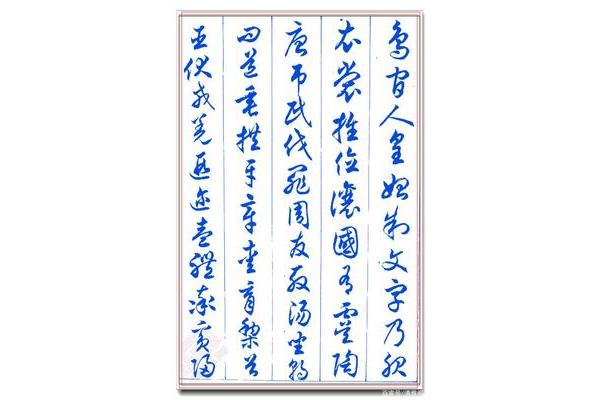 鳥官人皇始制文字乃服
衣裳推位讓國有虞陶
唐吊民伐罪周發殷湯坐朝
問道垂拱平章愛育黎首
臣伏戎羌遐邇壹體率賓歸